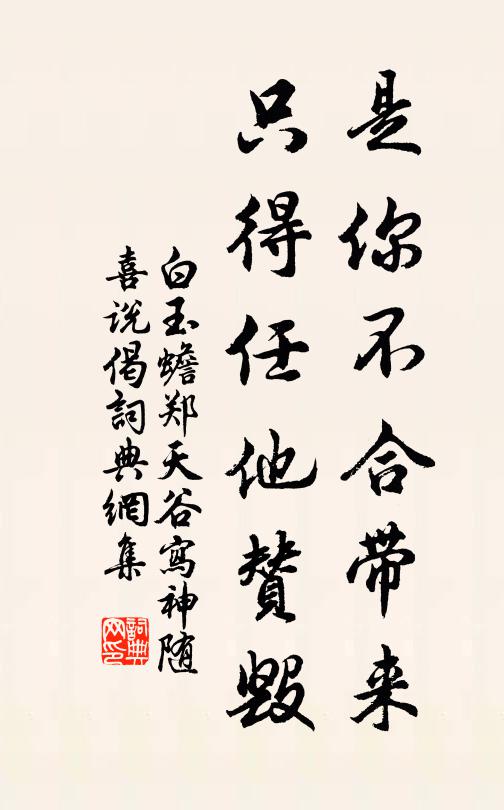 是你不合带来
只得任他贊毀
白玉蟾郑天谷寫神随
喜说偈詞典網集
詞典网印